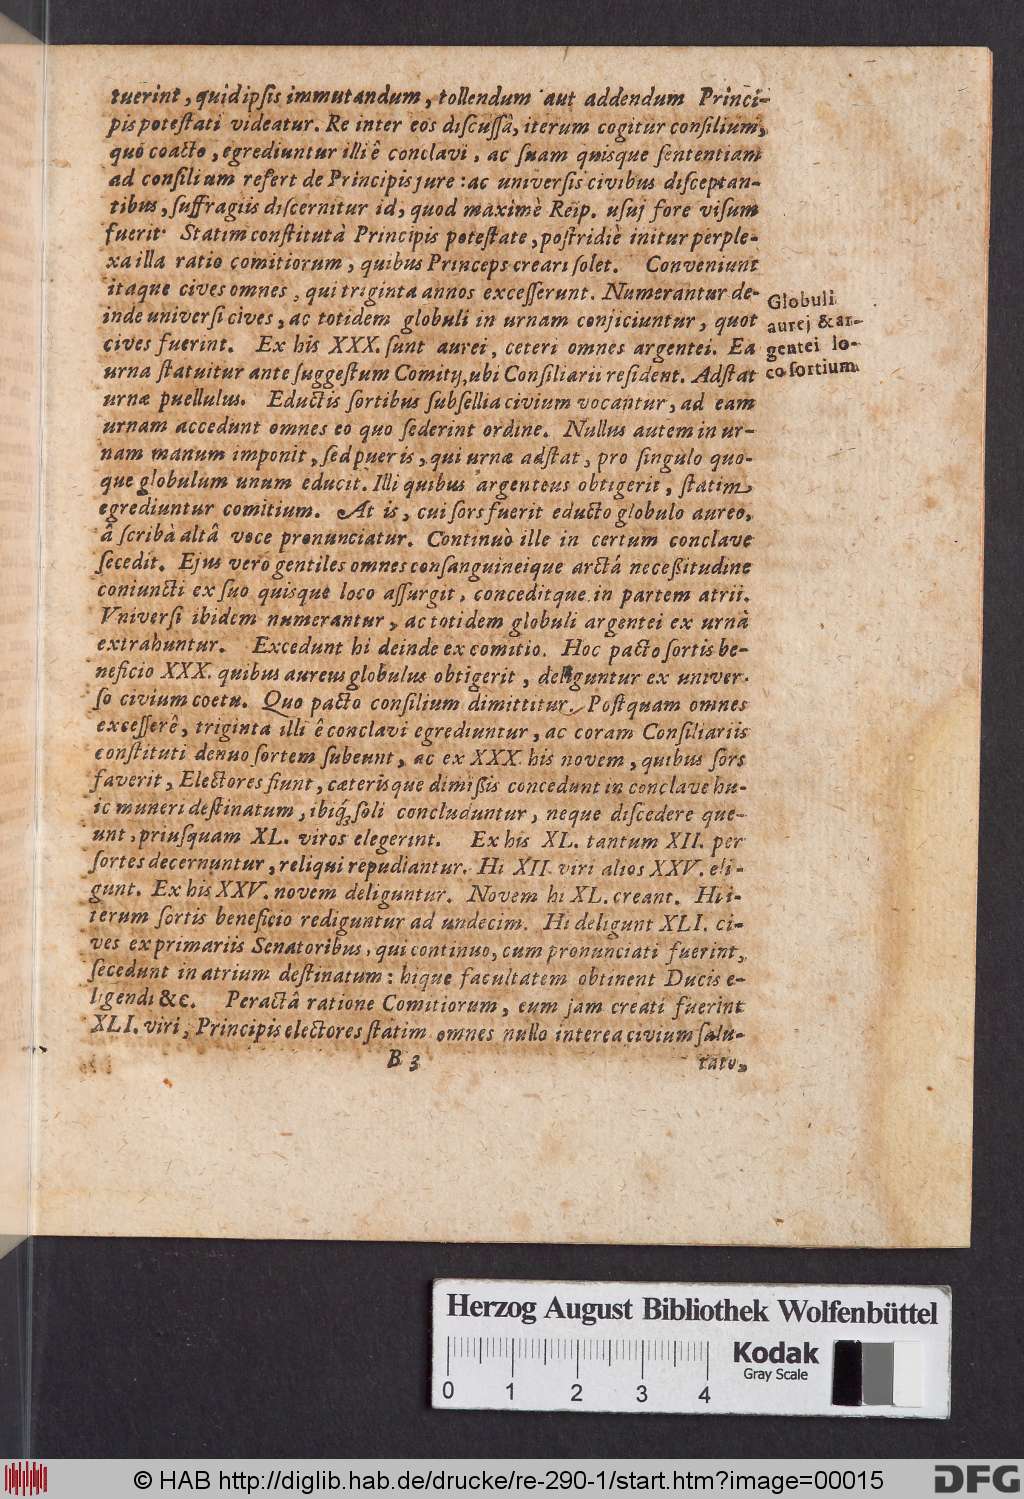 tuerint, quid ipſis immutandum, tollendum aut addendum Princi-
pis poteſtati videatur. Re inter eos diſcuſſâ, iterum cogitur conſilium,
quò coacto, egrediuntur illi ê conclavi, ac ſuam quisque ſententiam
ad conſilium refert de Principis jure: ac universis civibus diſceptan-
tibus, ſuffragiis diſcernitur id, quod maximè Reip. uſuj fore viſum
fuerit. Statim conſtitutà Principis poteſtate, poſtridiè initur perple-
xa illa ratio comitiorum, quibus Princeps creari ſolet. Conveniunt
itaque cives omnes, qui triginta annos exceſſerunt. Numerantur de-
inde univerſi cives, ac totidem globuli in urnam conjiciuntur, quot
cives fuerint. Ex his XXX. ſunt aurei, ceteri omnes argentei. Ea
urna ſtatuitur ante ſuggeſtum Comitij, ubi Conſiliarii reſident. Adſtat
urnæ puellulus. Eductis ſortibus ſubſellia civium vocantur, ad eam
urnam accedunt omnes eo quo ſederint ordine. Nullus autem in ur-
nam manum imponit, ſed puer is, qui urnæ adſtat, pro ſingulo quo-
que globulum unum educit. Illi quibus argenteus obtigerit, ſtatim
egrediuntur comitium. At is, cui ſors fuerit educto globulo aureo,
â ſcribà altâ voce pronunciatur. Continuò ille in certum conclave
ſecedit. Ejus verò gentiles omnes conſanguineique arctá neceßitudine
coniuncti ex ſuo quisque loco aſſurgit, conceditque in partem atrii.
Vniverſi ibidem numerantur, ac totidem globuli argentei ex urnà
extrahuntur. Excedunt hi deinde ex comitio. Hoc pacto ſortis be-
neficio XXX. quibus aureus globulus obtigerit, deliguntur ex univer-
ſo civium coetu. Quo pacto conſilium dimittitur. Poſtquam omnes
exceſſerê, triginta illi ê conclavi egrediuntur, ac coram Conſiliariis
conſtituti denuo ſortem ſubeunt, ac ex XXX. his novem, quibus ſors
faverit, Electores fiunt, cæterisque dimißis concedunt in conclave hu-
ic muneri deſtinatum, ibiq́; ſoli concluduntur, neque diſcedere que-
unt, priuſquam XL. viros elegerint. Ex his XL. tantum XII. per
ſortes decernuntur, reliqui repudiantur. Hi XII. viri alios XXV. eli-
gunt. Ex his XXV. novem deliguntur. Novem hi XL. creant. Hi i-
terum ſortis beneficio rediguntur ad undecim. Hi deligunt XLI. ci-
ves ex primariis Senatoribus, qui continuo, cum pronunciati fuerint,
ſecedunt in atrium deſtinatum: hique facultatem obtinent Ducis e-
ligendi &c. Peractâ ratione Comitiorum, cum jam creati fuerint
XLI. viri, Principis electores ſtatim omnes nullo interea civium ſalu-
B 3 tato,
Globuli
aurej & ar-
gentei lo-
co ſortium
Herzog August Bibliothek Wolfenbüttel
0 1 2 3 4
Kodak
Gray Scale
© HAB http://diglib.hab.de/drucke/re-290-1/start.htm?image=00015
DFG